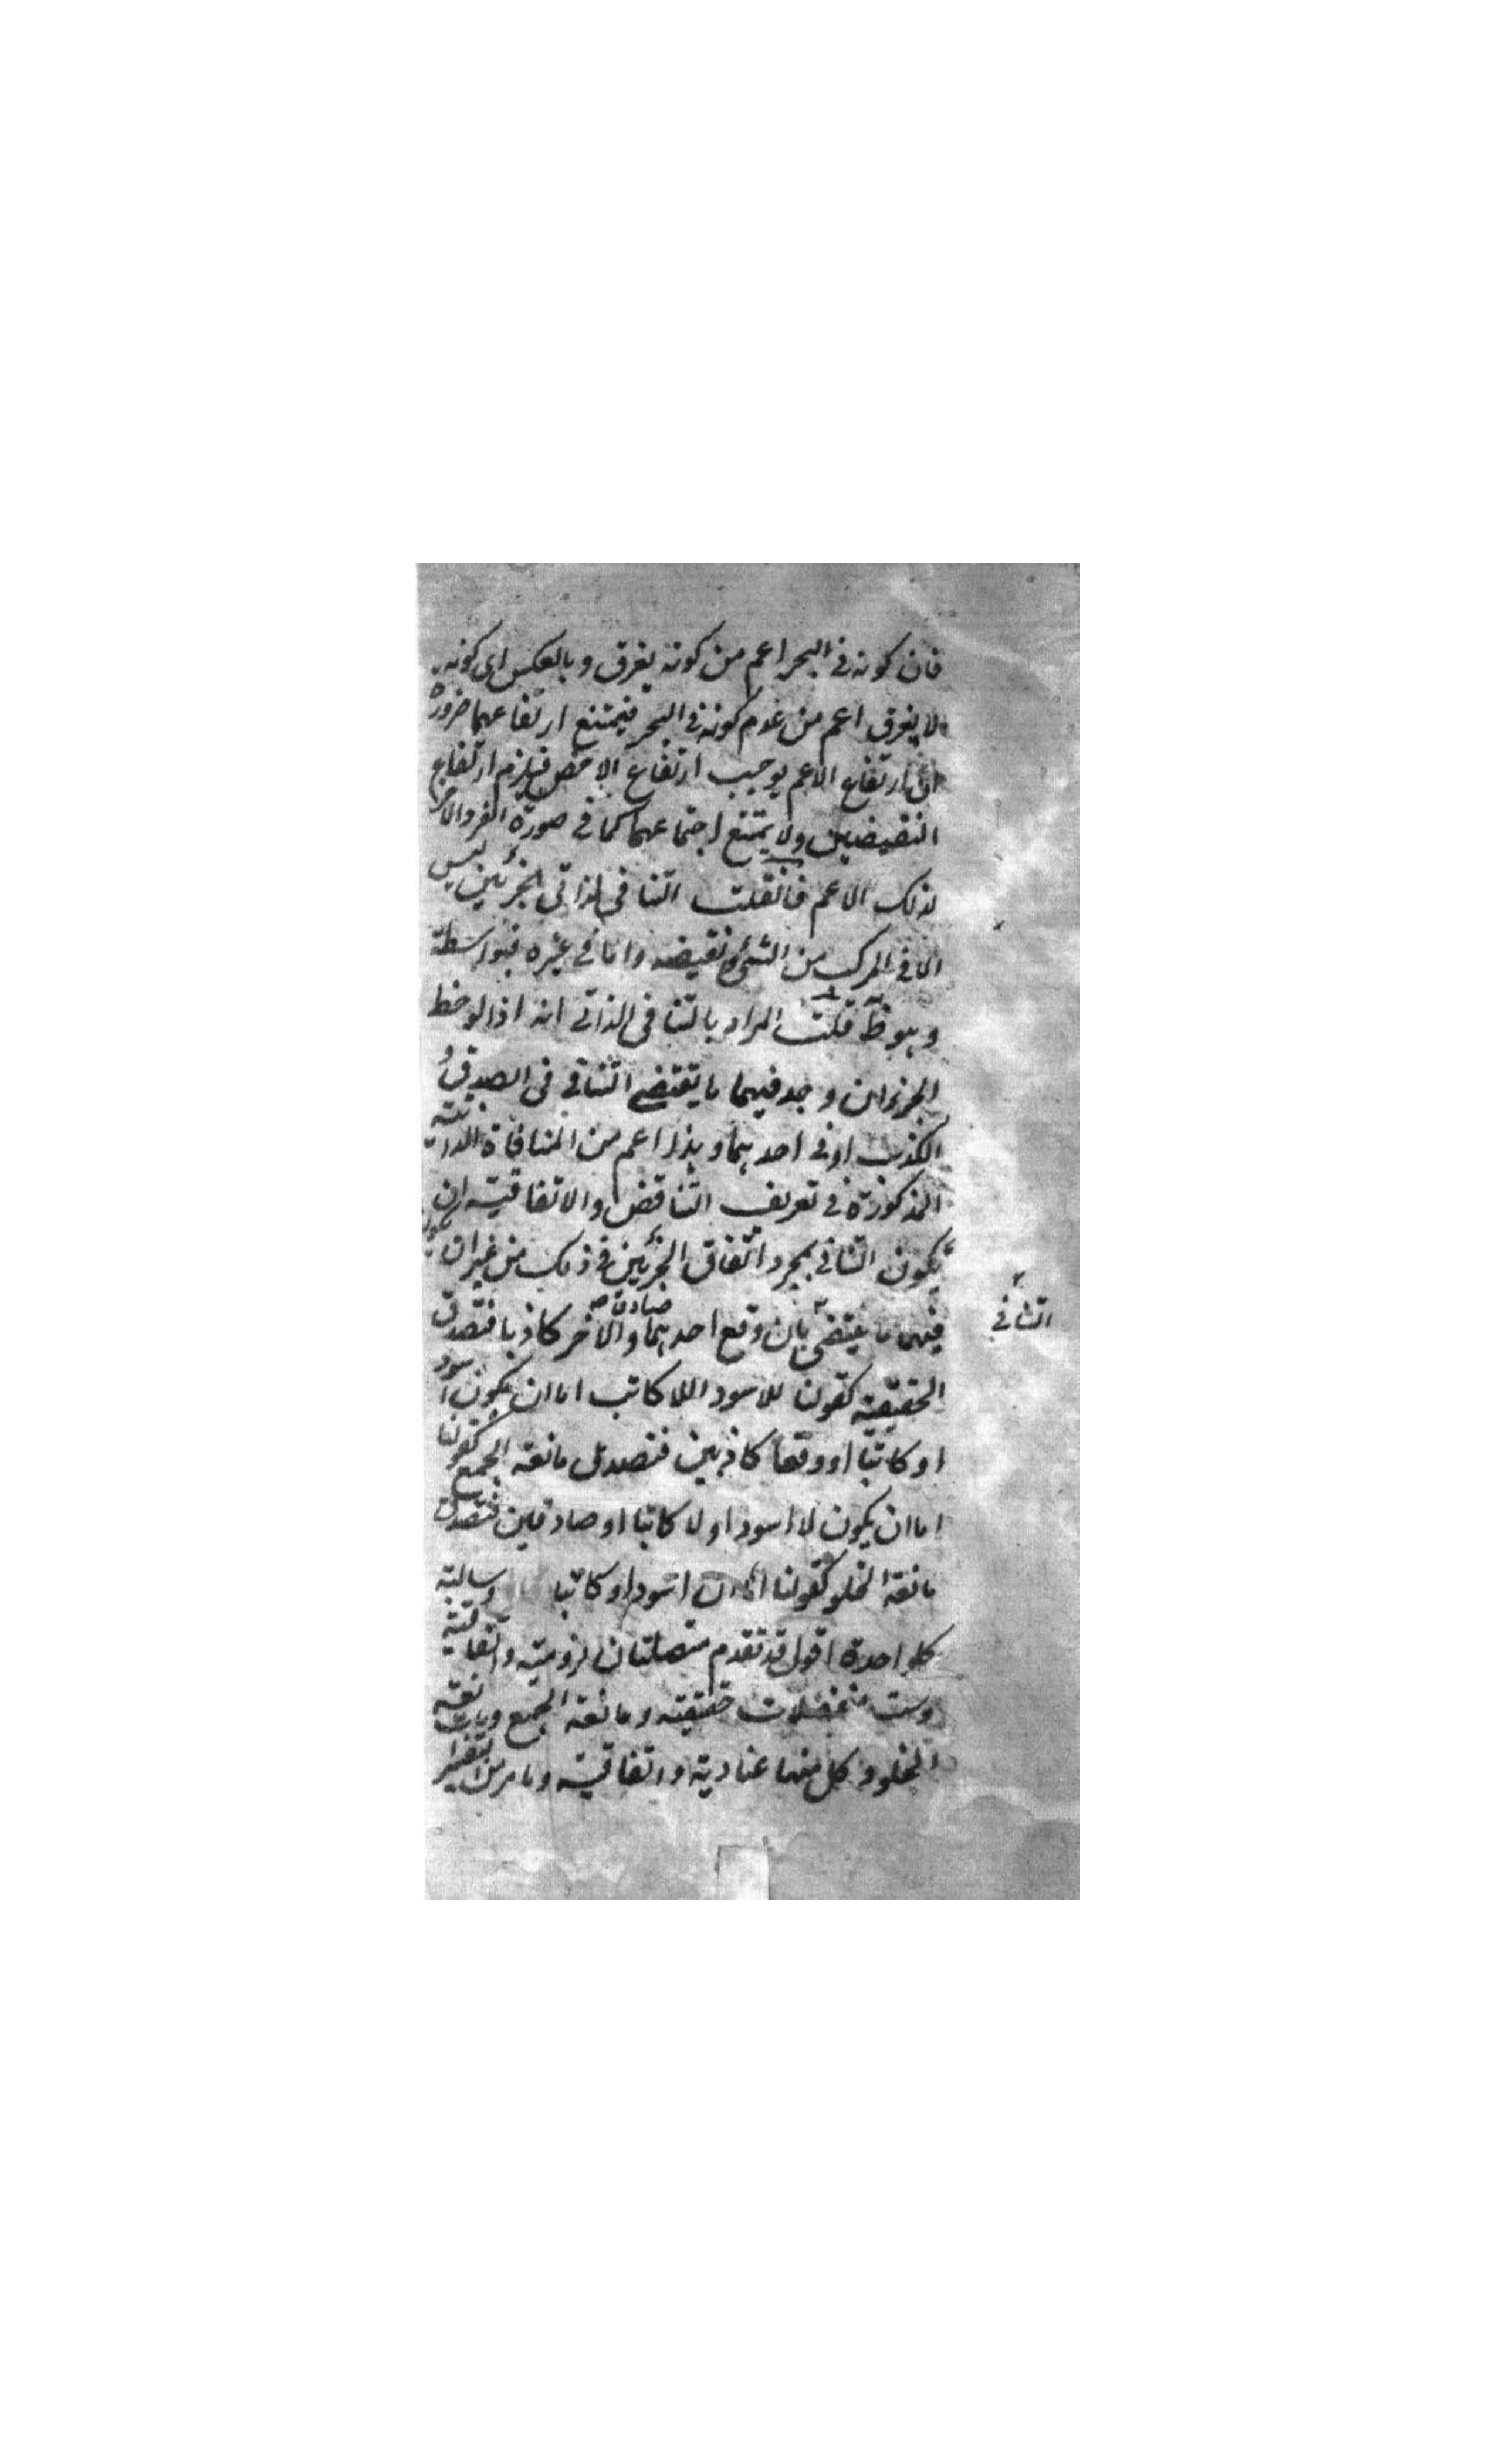 فان كونه فى البحر اعم من كونه يغرق وبالعكس اى كونه
لا يغرق اعم من عدم كونه فى البحر فيمتنع ارتفاعهما ضرورة
ان ارتفاع الاعم يوجب ارتفاع الاخص فيلزم ارتفاع
النقيضين ولا يمتنع اجتماعهما كما فى صورة الفرد الاخر
لذلك الاعم فان قلت التنافى لذاتى الجزئين ليس
الا فى المركب من الشئ ونقيضه واما فى غيره فبواسطة
وهو ظ قلت المراد بالتنافى الذاتى انه اذا لوحظ
الجزءان وجد فيهما ما يقتضى التنافى فى الصدق و
الكذب او فى احدهما وهذا اعم من المنافاة الذاتية
المذكورة فى تعريف التناقض والاتفاقية ان
يكون التنافى بمجرد اتفاق الجزئين فى ذلك من غير ان يكون
فيهما ما يقتضى بان وقع احدهما صادقا والاخر كاذبا فتصدق
التنافى
الحقيقية كقولنا للاسود اللا كاتب اما ان يكون اسود
او كاتبا او وقعا كاذبين فتصدق مانعة الجمع كقولنا
اما ان يكون لا اسود او لا كاتبا او صادقين فتصدق
مانعة الخلو كقولنا اما ان اسود او كاتبا وسالبة
كل واحدة اقول قد تقدم متصلتان لزومية واتفاقية
وست منفصلات حقيقية ومانعة الجمع ومانعة
الخلو وكل منها عنادية واتفاقية وما مر من التفسير